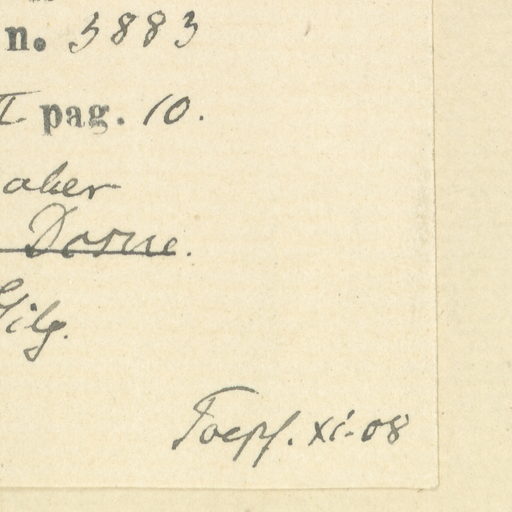 n. 3883
pag. 10.
aber
Dosne.
Gilg.
Toepf. xi-08